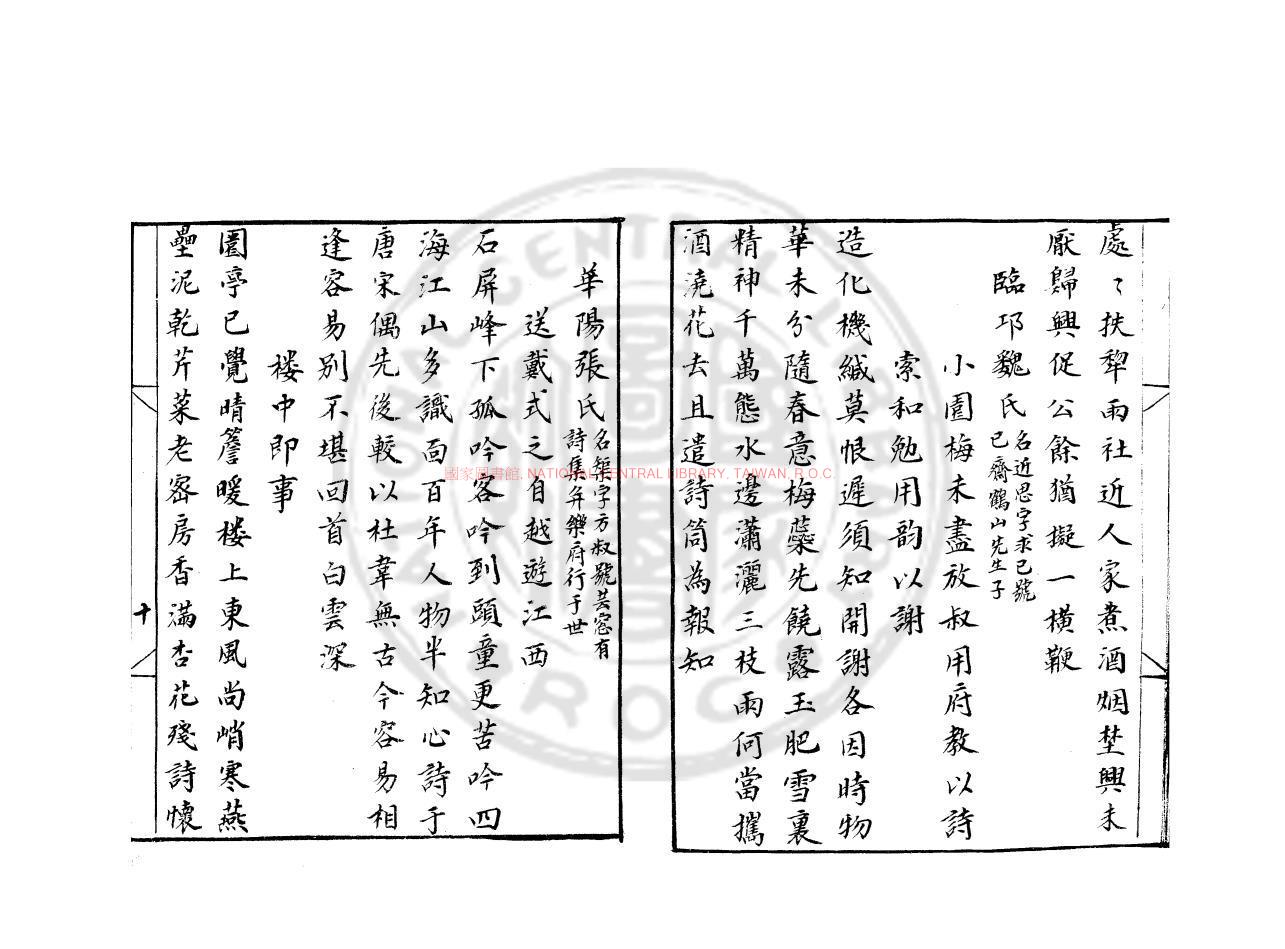 處〻扶犂雨社近人家煮酒烟埜興未
厭歸興促公餘猶擬一橫鞭
臨邛魏氏
名近思字求己號
己齋鶴山先生子
小園梅未盡放叔用府教以詩
索和勉用韵以謝
造化機緘莫恨遲須知開謝各因時物
華未分隨春意梅蘂先饒露玉肥雪裏
精神千萬態水邊瀟灑三枝雨何當攜
酒澆花去且遣詩筒為報知
華陽張氏
名榘字方叔號芸窓有
詩集并樂府行于世
送戴式之自越遊江西
石屏峰下孤吟客吟到頭童更苦吟四
海江山多識面百年人物半知心詩于
唐宋偶先後較以杜韋無古今容易相
逢容易別不堪回首白雲深
楼中即事
園亭已覺晴簷暖楼上東風尚峭寒燕
壘泥乾芹菜老窗房香滿杏花殘詩懷
十
國家圖書館, NATIONAL CENTRAL LIBRARY, TAIWAN, R.O.C
NATIONAL CENTRAL LIBRARY
R.O.C